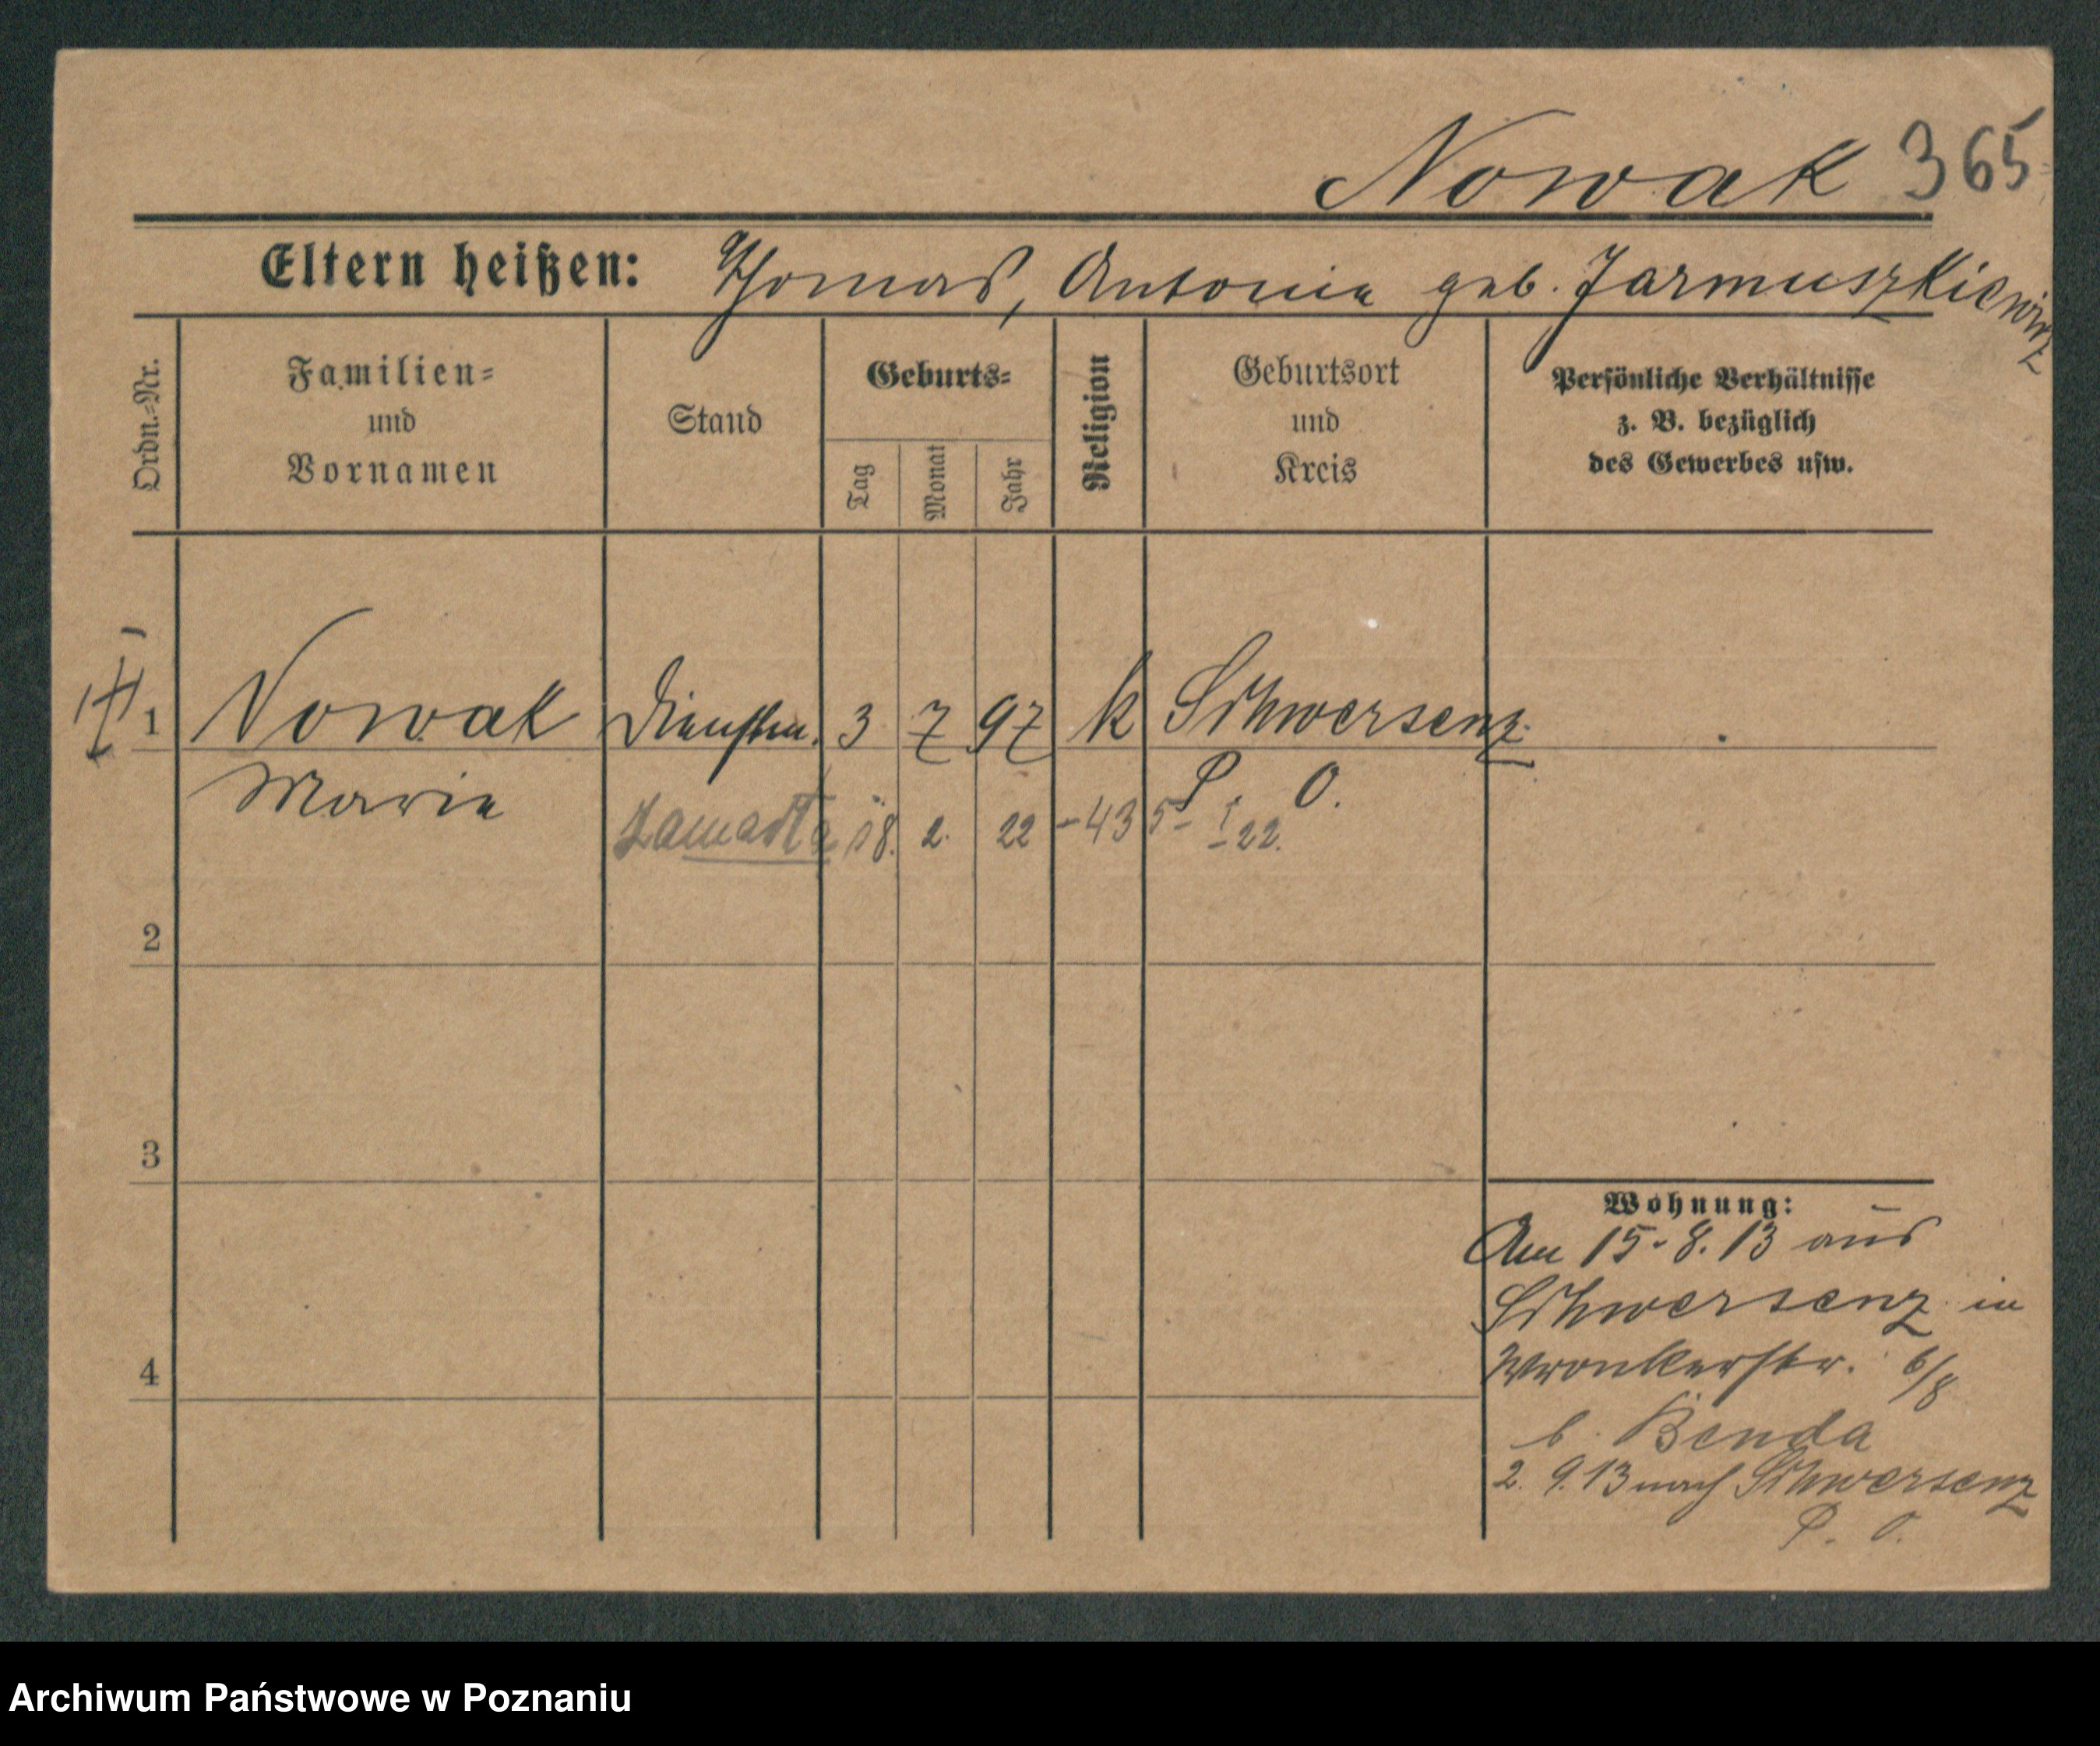 Nowak 365
Eltern heißen: Thomas, Antonie geb. Jarmuszkiewicz
Ordn.-Nr.
Familien-
und
Vornamen
Stand
Geburts-
Tag
Monat
Jahr
Religion
Geburtsort
und
Kreis
Persönliche Verhältnisse
z. B. bezüglich
des Gewerbes usw.
1 Nowak Dienstm. 3 7 97 k Schwersenz
Marie P. O.
18. 2. 22 -435- I 22.
2
3
4
Wohnung:
Am 15.8.13 aus
Schwersenz in
Wronkerstr. 6/8
b. Benda
2. 9.13 nach Schwersenz
P. O.
Archiwum Państwowe w Poznaniu